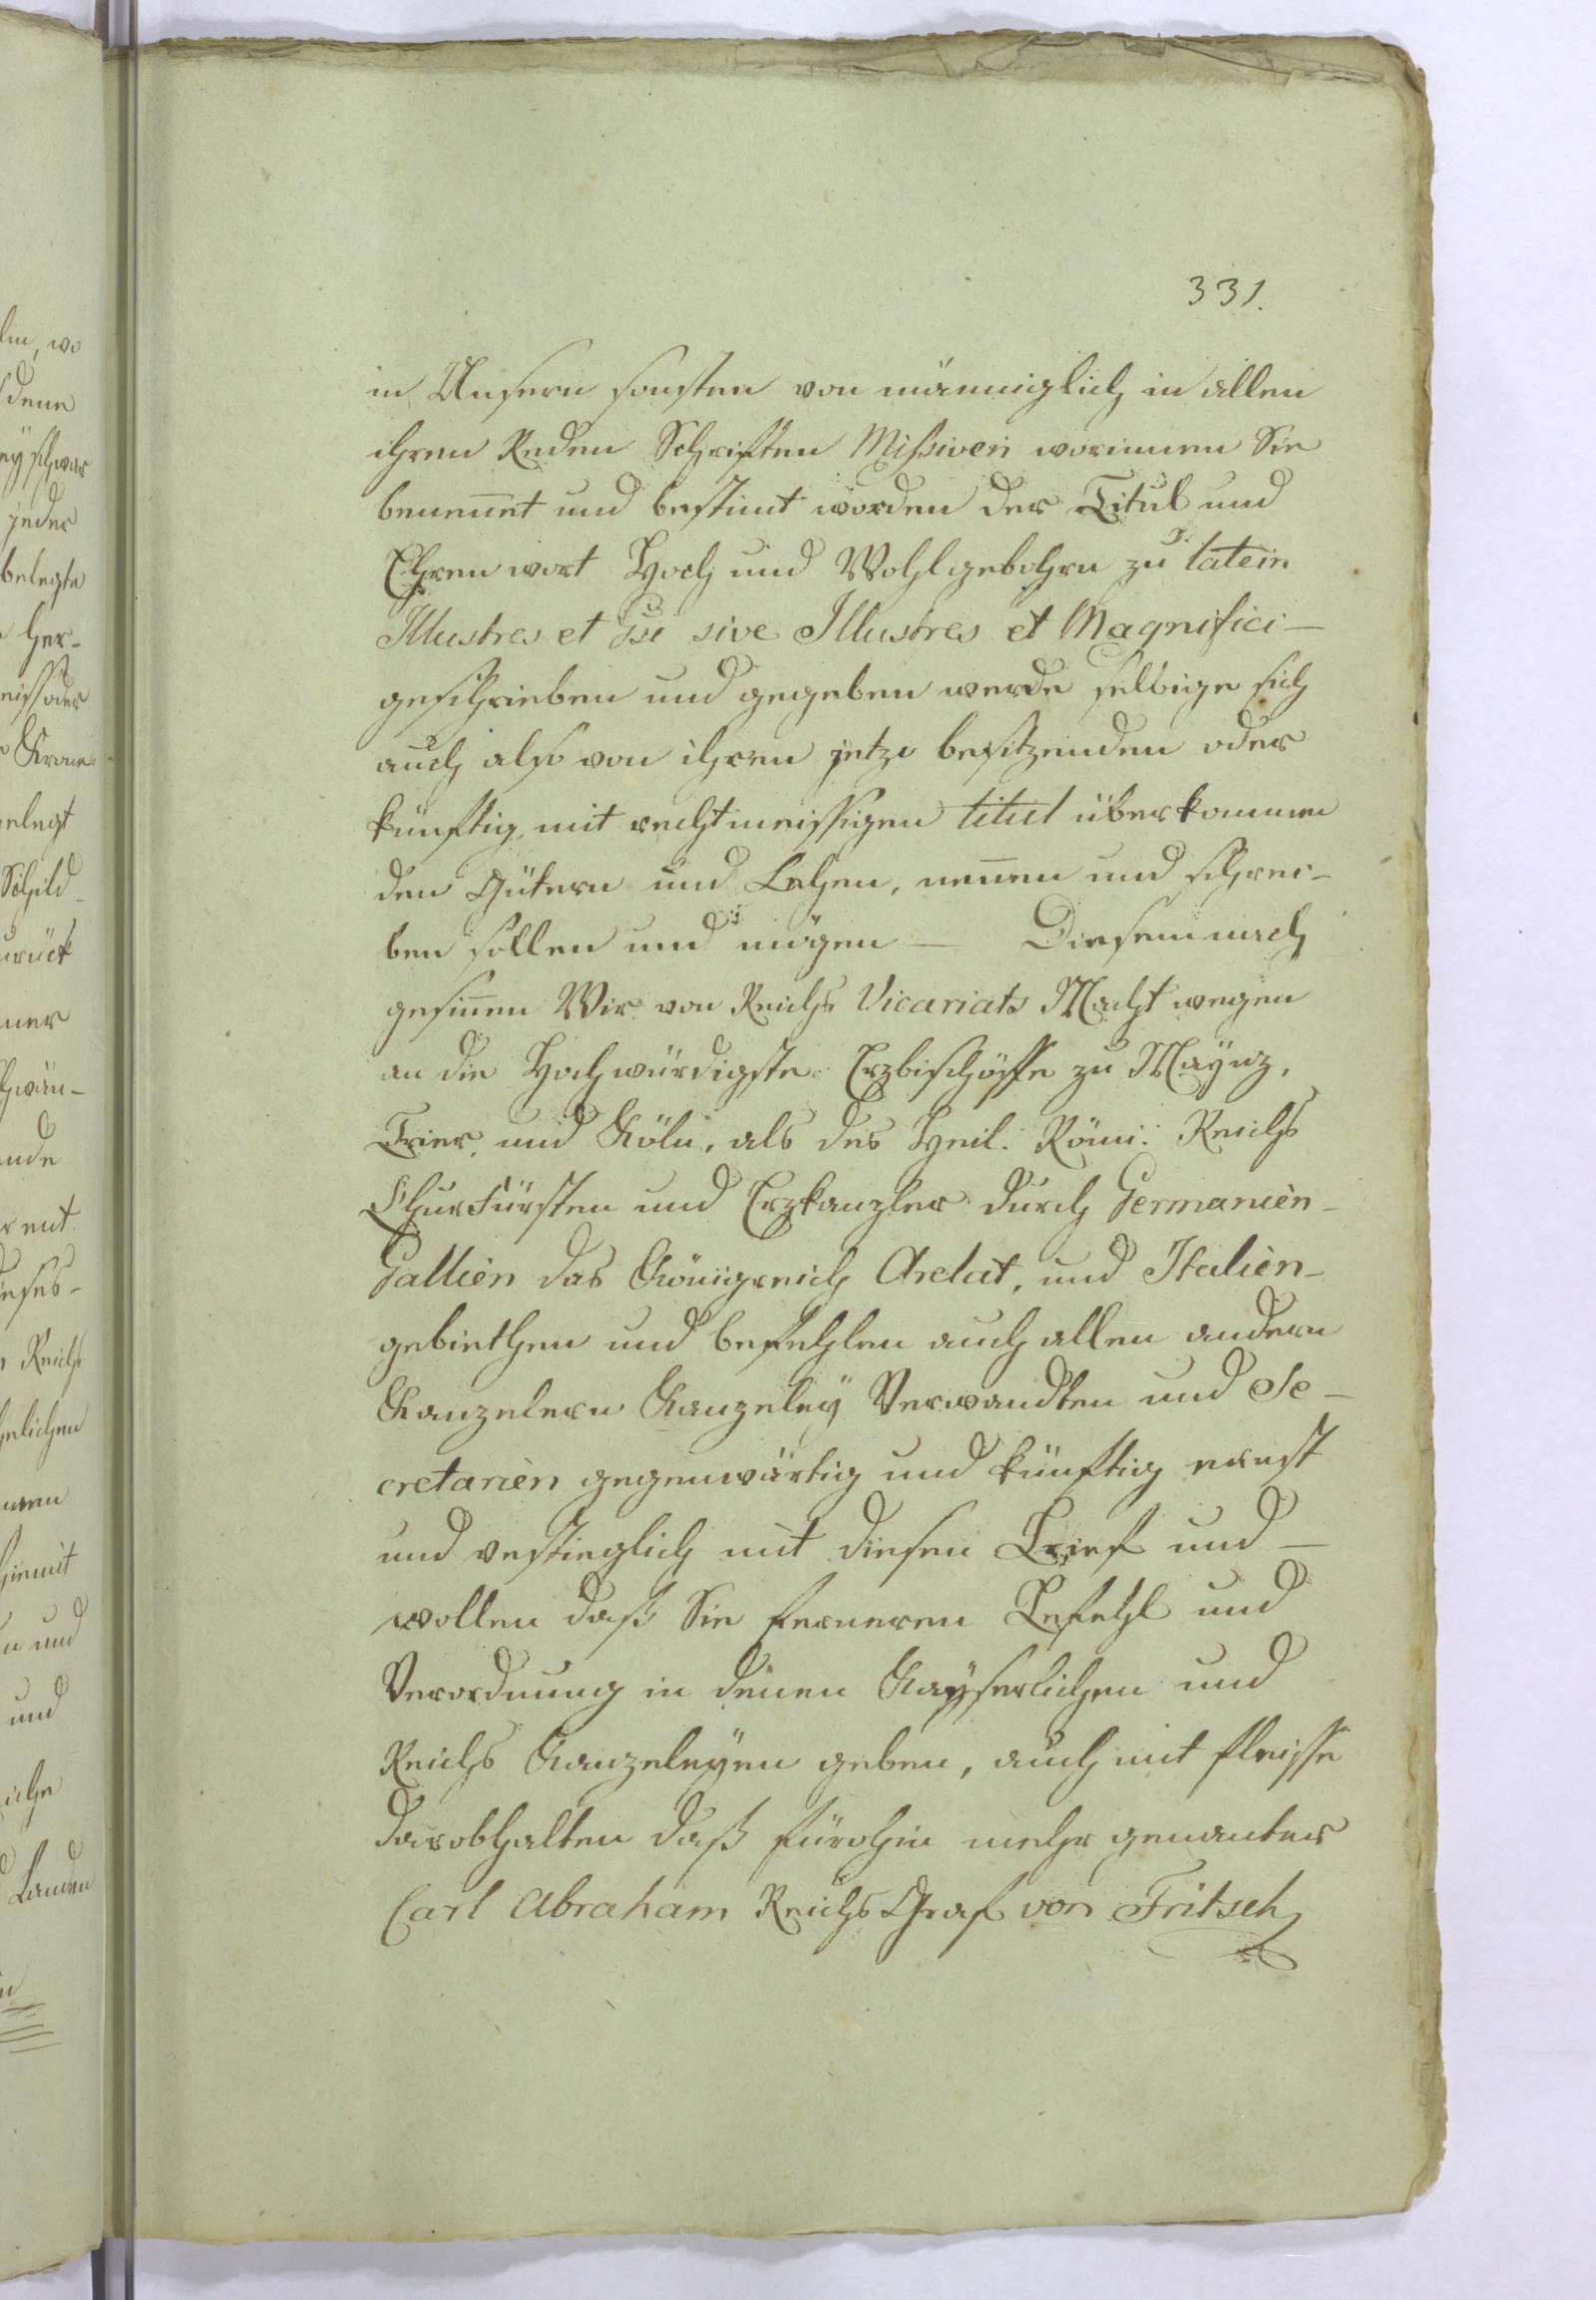 331.
in Unsern sonsten von männiglich in allen
ihren Reden Schriften Missiven worinnen Sie
benen̄et und bestimt worden der Titul und
Ehrenwort Hoch und Wohlgebohrn zu latein
Illustres et sive Illustres et Magnifici —
geschrieben und gegeben werde selbige sich
auch also von ihren jetze besitzenden oder
künftig mit rechtmeissigen titul überkommen
den Gütern und Lehen, nen̄en und schrei-
ben sollen und mögen — Diesemnach
gesin̄en Wir von Reichs Vicariats Macht wegen
an die Hochwürdigste Erzbischöffe zu Maÿnz,
Trier, und Köln, als des Heil: Römi: Reichs
Churfürsten und Erzkanzler durch Germanien-
Gallien das Königreich Arelat, und Italien-
gebiethen und befehlen auch allen andern
Kanzelern Kanzeleÿ Verwandten und Se-
cretarien gegenwärtig und künftig ernst
und vestieglich mit diesen Brief und —
wollen daß Sie ferneren Befehl und
Verordnung in denen Kaÿserlichen und
Reichs Kanzeleÿen geben, auch mit fleisse
darobhalten daß fürohin mehr genanter
Carl Abraham Reichs Graf von Fritsch
lin, wo
denn
jeder
belegte
Her-
eiß oder
Krone
belegt
Schild
urück
ner
ende
eses-
Reichs
hiemit
n und
und
iche
Landen